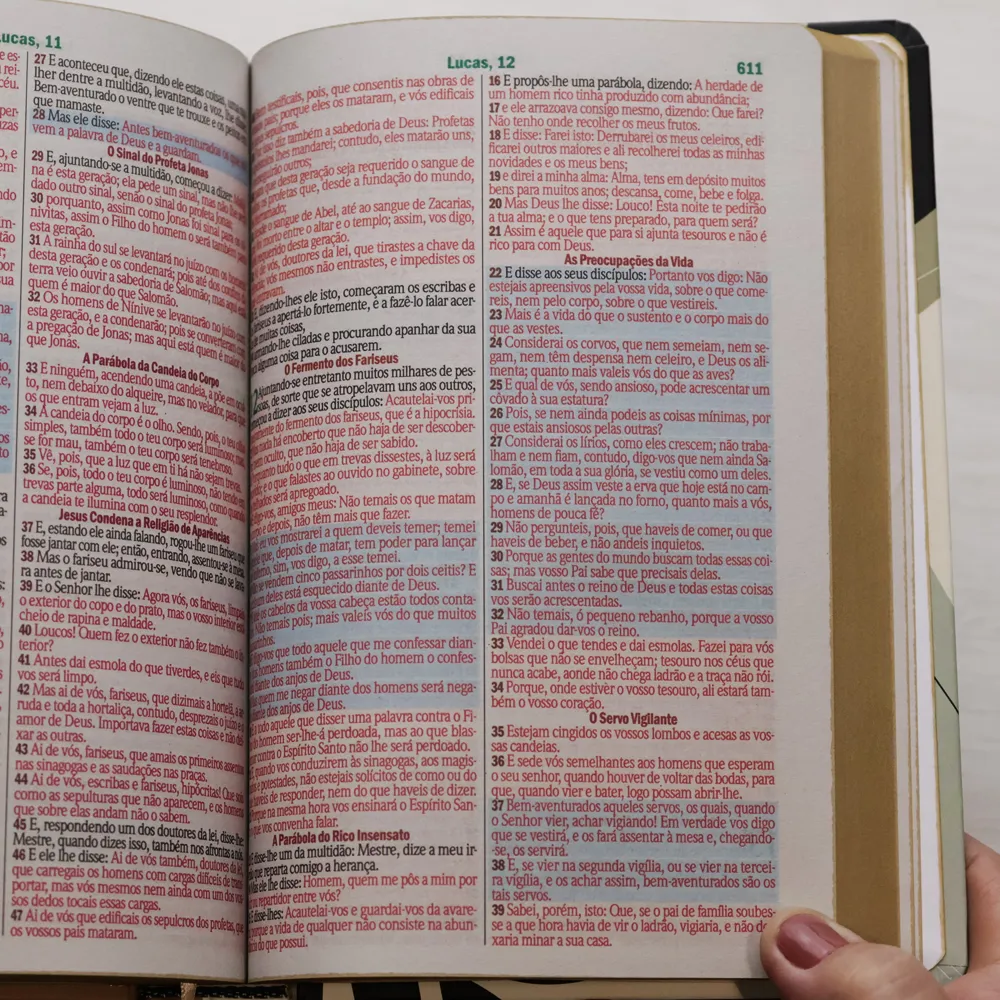 Lucas, 11
27 E aconteceu que, dizendo ele estas coisas, uma
lher dentre a multidão, levantando a voz, lhe
Bem-aventurado o ventre que te trouxe e os peitos
que mamaste.
28 Mas ele disse: Antes bem-aventurados os que
vem a palavra de Deus e a guardam.
O Sinal do Profeta Jonas
29 E, ajuntando-se a multidão, começou a dizer:
na é esta geração; ela pede um sinal, mas não lhe
dado outro sinal, senão o sinal do profeta Jonas;
30 porquanto, assim como Jonas foi sinal para os
nivitas, assim o Filho do homem o será também
esta geração.
31 A rainha do sul se levantará no juízo com os homens
desta geração e os condenará; pois até dos confins
terra veio ouvir a sabedoria de Salomão; mas aqui está
quem é maior do que Salomão.
32 Os homens de Nínive se levantarão no juízo com
esta geração, e a condenarão; pois se converteram com
a pregação de Jonas; mas aqui está quem é maior do
que Jonas.
A Parábola da Candeia do Corpo
33 E ninguém, acendendo uma candeia, a põe em ocul
to, nem debaixo do alqueire, mas no velador, para que
os que entram vejam a luz.
34 A candeia do corpo é o olho. Sendo, pois, o teu olho
simples, também todo o teu corpo será luminoso; mas,
se for mau, também o teu corpo será tenebroso.
35 Vê, pois, que a luz que em ti há não sejam trevas.
36 Se, pois, todo o teu corpo é luminoso, não tendo em
trevas parte alguma, todo será luminoso, como quando
a candeia te ilumina com o seu resplendor.
Jesus Condena a Religião de Aparências
37 E, estando ele ainda falando, rogou-lhe um fariseu que
fosse jantar com ele; então, entrando, assentou-se à mesa.
38 Mas o fariseu admirou-se, vendo que não se lava
ra antes de jantar.
39 E o Senhor lhe disse: Agora vós, os fariseus, limpais
o exterior do copo e do prato, mas o vosso interior está
cheio de rapina e maldade.
40 Loucos! Quem fez o exterior não fez também o in
terior?
41 Antes dai esmola do que tiverdes, e eis que tudo
vos será limpo.
42 Mas ai de vós, fariseus, que dizimais a hortelã, a ar
ruda e toda a hortaliça, contudo, desprezais o juízo e o
amor de Deus. Importava fazer estas coisas e não dei
xar as outras.
43 Ai de vós, fariseus, que amais os primeiros assentos
nas sinagogas e as saudações nas praças.
44 Ai de vós, escribas e fariseus, hipócritas! Que sois
como as sepulturas que não aparecem, e os homens
que sobre elas andam não o sabem.
45 E, respondendo um dos doutores da lei, disse-lhe:
Mestre, quando dizes isso, também nos afrontas a nós.
46 E ele lhe disse: Ai de vós também, doutores da lei,
que carregais os homens com cargas difíceis de trans
portar, mas vós mesmos nem ainda com um dos vos
sos dedos tocais essas cargas.
47 Ai de vós que edificais os sepulcros dos profetas, que
os vossos pais mataram.
Lucas, 12
611
testificais, pois, que consentis nas obras de
pais; porque eles os mataram, e vós edificais
sepulcros.
diz também a sabedoria de Deus: Profetas
lhes mandarei; contudo, eles matarão uns,
outros;
que desta geração seja requerido o sangue de
profetas que, desde a fundação do mundo,
sangue de Abel, até ao sangue de Zacarias,
morto entre o altar e o templo; assim, vos digo,
desta geração.
de vós, doutores da lei, que tirastes a chave da
vós mesmos não entrastes, e impedistes os
E, dizendo-lhes ele isto, começaram os escribas e
fariseus a apertá-lo fortemente, e a fazê-lo falar acer-
de muitas coisas,
armando-lhe ciladas e procurando apanhar da sua
alguma coisa para o acusarem.
O Fermento dos Fariseus
Ajuntando-se entretanto muitos milhares de pes-
soas, de sorte que se atropelavam uns aos outros,
começou a dizer aos seus discípulos: Acautelai-vos pri-
do fermento dos fariseus, que é a hipocrisia.
nada há encoberto que não haja de ser descober-
nem oculto, que não haja de ser sabido.
tudo o que em trevas dissestes, à luz será
e o que falastes ao ouvido no gabinete, sobre
será apregoado.
digo-vos, amigos meus: Não temais os que matam
e depois, não têm mais que fazer.
eu vos mostrarei a quem deveis temer; temei
que, depois de matar, tem poder para lançar
sim, vos digo, a esse temei.
se vendem cinco passarinhos por dois ceitis? E
um deles está esquecido diante de Deus.
os cabelos da vossa cabeça estão todos conta-
Não temais pois; mais valeis vós do que muitos
digo-vos que todo aquele que me confessar dian-
homens também o Filho do homem o confes-
diante dos anjos de Deus.
quem me negar diante dos homens será nega-
diante dos anjos de Deus.
todo aquele que disser uma palavra contra o Fi-
do homem ser-lhe-á perdoada, mas ao que blas-
contra o Espírito Santo não lhe será perdoado.
E, quando vos conduzirem às sinagogas, aos magis-
e potestades, não estejais solícitos de como ou do
haveis de responder, nem do que haveis de dizer.
Porque na mesma hora vos ensinará o Espírito San-
que vos convenha falar.
A Parábola do Rico Insensato
E disse-lhe um da multidão: Mestre, dize a meu ir-
que reparta comigo a herança.
Mas ele lhe disse: Homem, quem me pôs a mim por
repartidor entre vós?
E disse-lhes: Acautelai-vos e guardai-vos da avare-
porque a vida de qualquer não consiste na abun-
do que possui.
16 E propôs-lhe uma parábola, dizendo: A herdade de
um homem rico tinha produzido com abundância;
17 e ele arrazoava consigo mesmo, dizendo: Que farei?
Não tenho onde recolher os meus frutos.
18 E disse: Farei isto: Derrubarei os meus celeiros, edi-
ficarei outros maiores e ali recolherei todas as minhas
novidades e os meus bens;
19 e direi a minha alma: Alma, tens em depósito muitos
bens para muitos anos; descansa, come, bebe e folga.
20 Mas Deus lhe disse: Louco! Esta noite te pedirão
a tua alma; e o que tens preparado, para quem será?
21 Assim é aquele que para si ajunta tesouros e não é
rico para com Deus.
As Preocupações da Vida
22 E disse aos seus discípulos: Portanto vos digo: Não
estejais apreensivos pela vossa vida, sobre o que come-
reis, nem pelo corpo, sobre o que vestireis.
23 Mais é a vida do que o sustento e o corpo mais do
que as vestes.
24 Considerai os corvos, que nem semeiam, nem se-
gam, nem têm despensa nem celeiro, e Deus os ali-
menta; quanto mais valeis vós do que as aves?
25 E qual de vós, sendo ansioso, pode acrescentar um
côvado à sua estatura?
26 Pois, se nem ainda podeis as coisas mínimas, por
que estais ansiosos pelas outras?
27 Considerai os lírios, como eles crescem; não traba-
lham e nem fiam, contudo, digo-vos que nem ainda Sa-
lomão, em toda a sua glória, se vestiu como um deles.
28 E, se Deus assim veste a erva que hoje está no cam-
po e amanhã é lançada no forno, quanto mais a vós,
homens de pouca fé?
29 Não pergunteis, pois, que haveis de comer, ou que
haveis de beber, e não andeis inquietos.
30 Porque as gentes do mundo buscam todas essas coi-
sas; mas vosso Pai sabe que precisais delas.
31 Buscai antes o reino de Deus e todas estas coisas
vos serão acrescentadas.
32 Não temais, ó pequeno rebanho, porque a vosso
Pai agradou dar-vos o reino.
33 Vendei o que tendes e dai esmolas. Fazei para vós
bolsas que não se envelheçam; tesouro nos céus que
nunca acabe, aonde não chega ladrão e a traça não rói.
34 Porque, onde estiver o vosso tesouro, ali estará tam-
bém o vosso coração.
O Servo Vigilante
35 Estejam cingidos os vossos lombos e acesas as vos-
sas candeias.
36 E sede vós semelhantes aos homens que esperam
o seu senhor, quando houver de voltar das bodas, para
que, quando vier e bater, logo possam abrir-lhe.
37 Bem-aventurados aqueles servos, os quais, quando
o Senhor vier, achar vigiando! Em verdade vos digo
que se vestirá, e os fará assentar à mesa e, chegando-
-se, os servirá.
38 E, se vier na segunda vigília, ou se vier na tercei-
ra vigília, e os achar assim, bem-aventurados são os
tais servos.
39 Sabei, porém, isto: Que, se o pai de família soubes-
se a que hora havia de vir o ladrão, vigiaria, e não
xaria minar a sua casa.